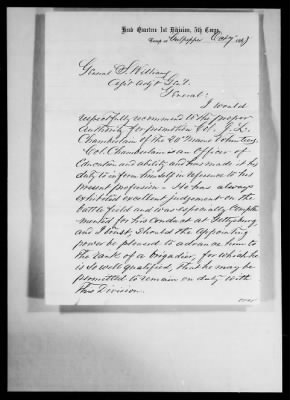 Head Quarters 1st Division, 5th Corps,
Camp at Culpepper 1863
General S. Williams
Asst Adjt Genl.
General:
I would
respectfully recommend to the proper
Authority for promotion Col. J. L.
Chamberlain of the 20th Maine Volunteers.
Col. Chamberlain is an Officer of
Education and ability and has made it his
duty to inform himself in reference to his
present profession. He has always
exhibited excellent judgement on the
battle field and was especially compli-
mented for his conduct at Gettysburg
and I trust, should the appointing
power be pleased to advance him to
the rank of a brigadier, for which he
is so well qualified, that he may be
permitted to remain on duty with
this Division.
over